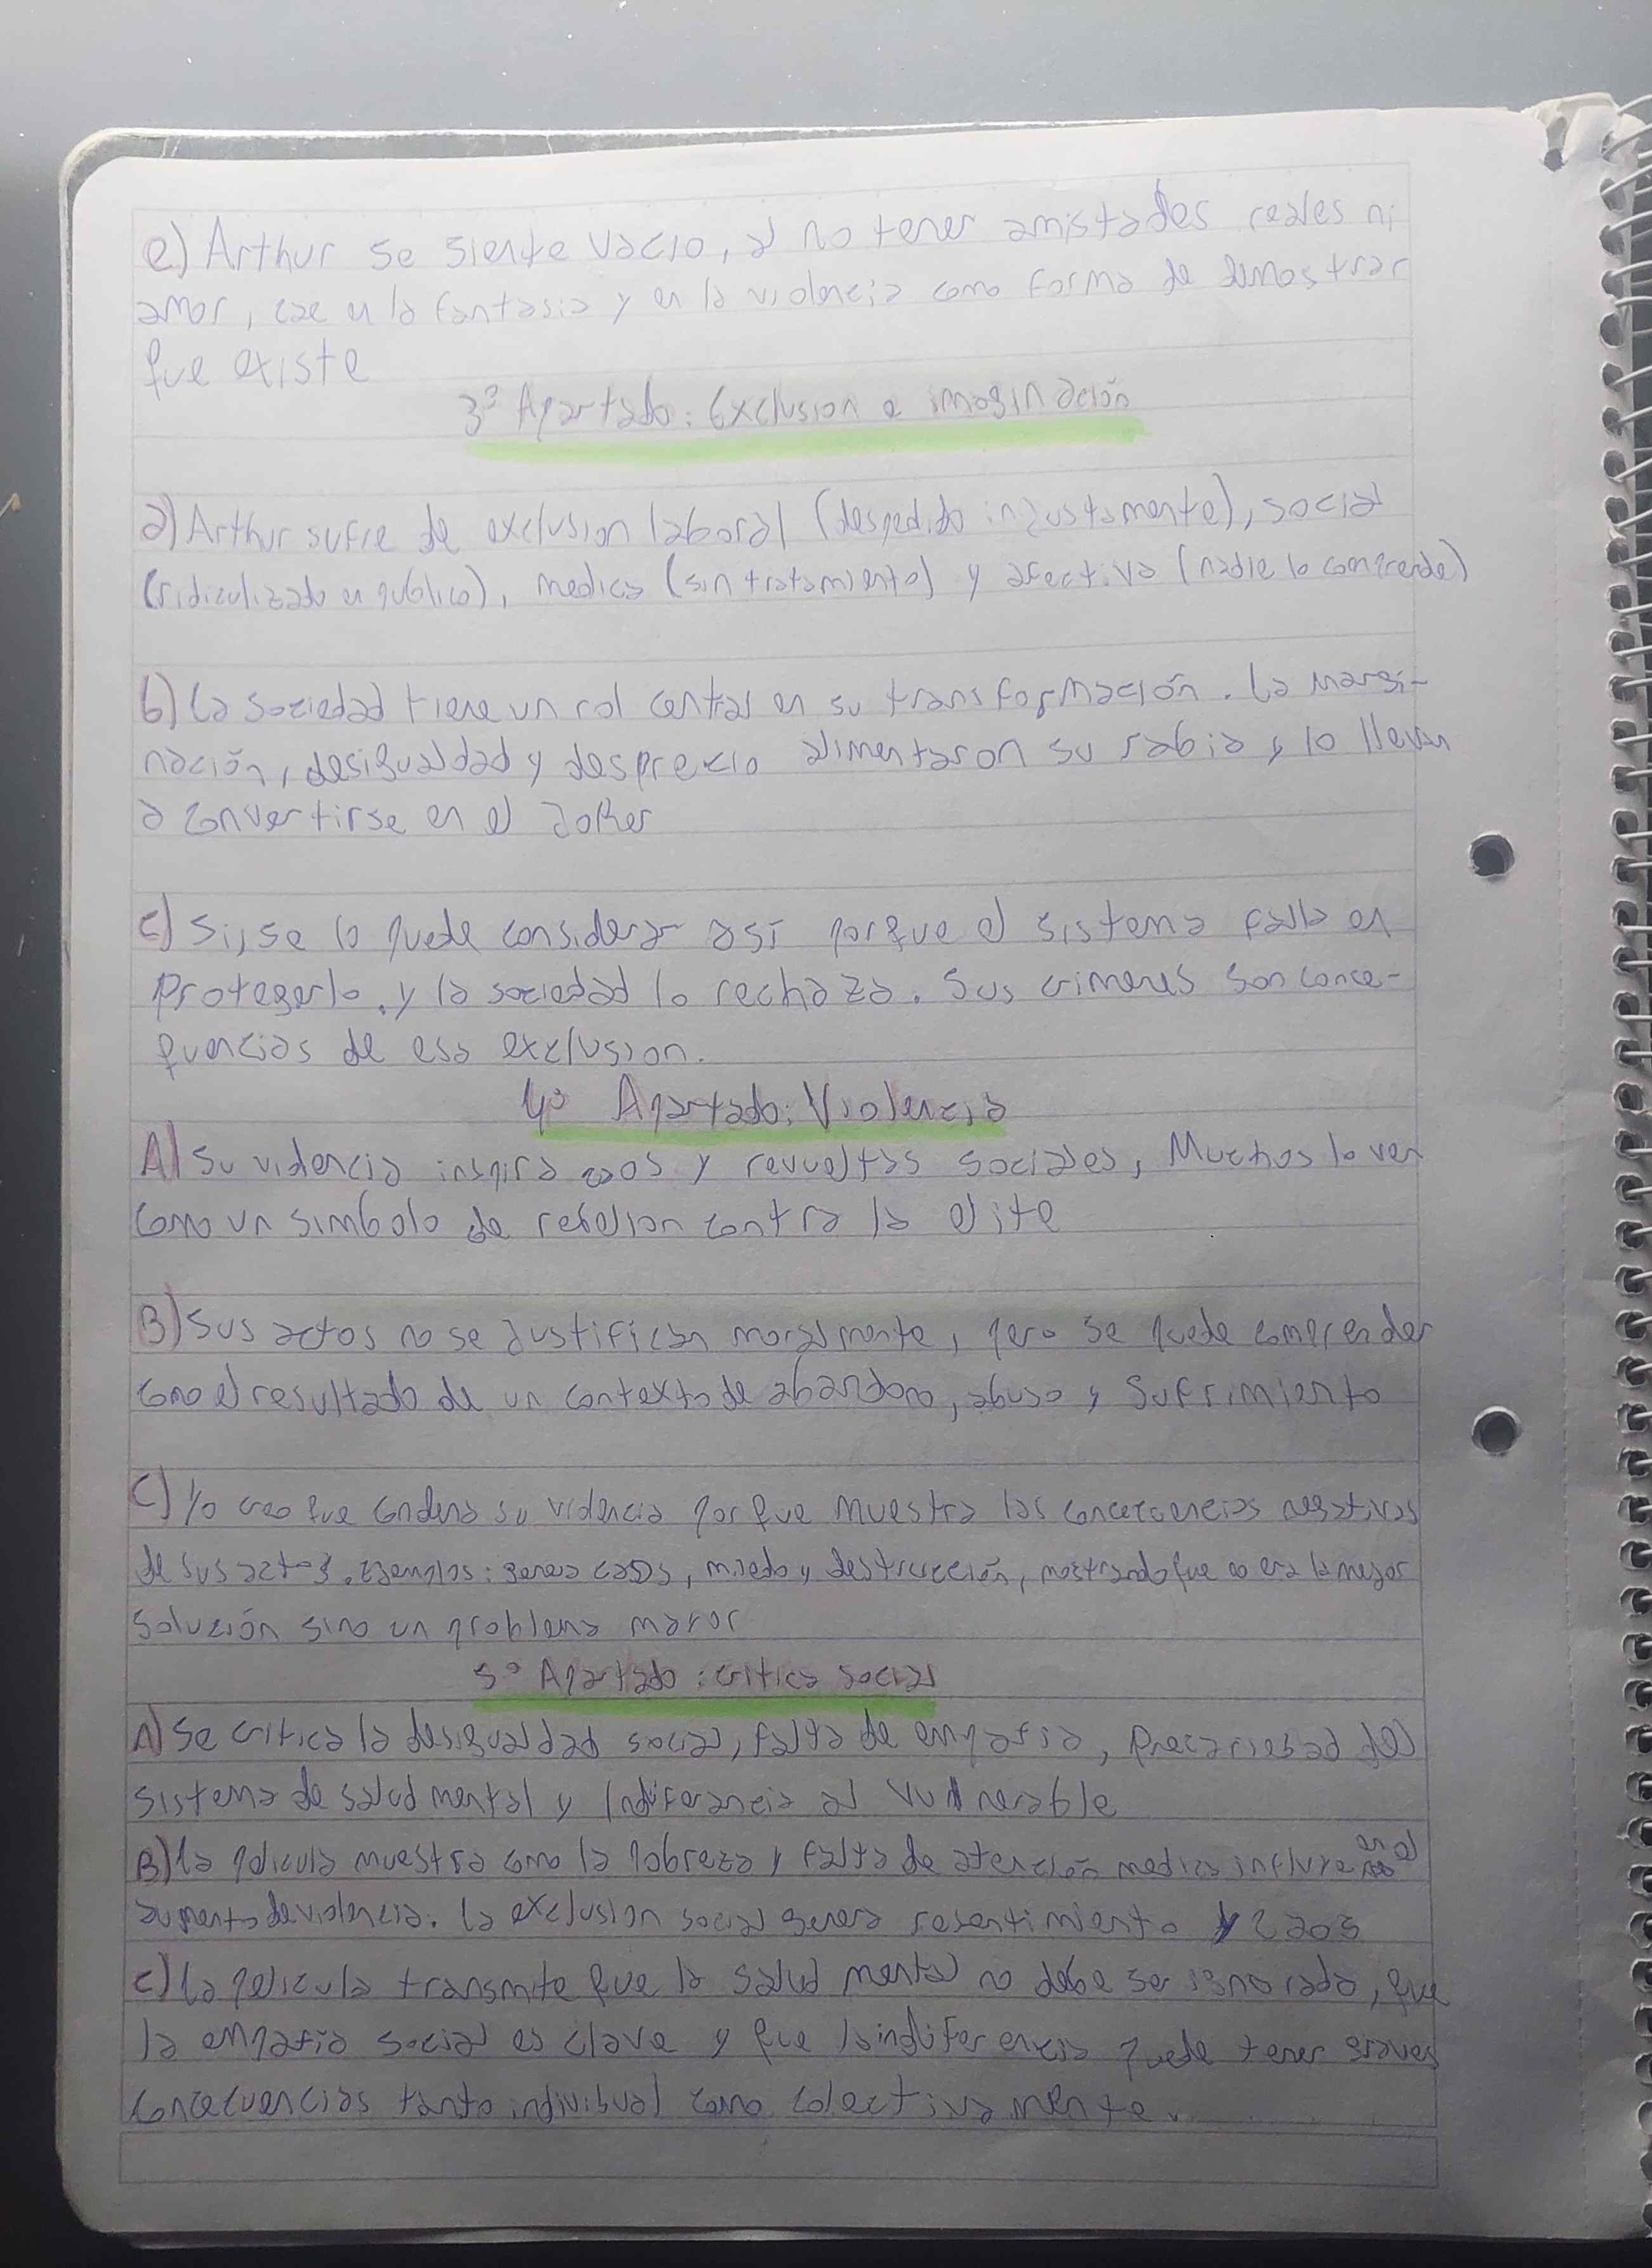 e) Arthur se siente vacio, al no tener amistades reales ni
amor, cae en la fantasia y en la violencia como forma de demostrar
que existe
3º Apartado: Exclusion e imaginación
a) Arthur sufre de exclusion laboral (despedido injustamente), social
(ridiculizado en publico), medica (sin tratamiento) y afectiva (nadie lo comprende)
b) La sociedad tiene un rol central en su transformación. La margi-
nación, desigualdad y desprecio alimentaron su rabia y lo llevan
a convertirse en el Joker
c) Si, se lo puede considerar así porque el sistema falla en
Protegerlo. y la sociedad lo rechaza. Sus crimenes son conce-
quencias de esa exclusion.
4º Apartado: Violencia
A) Su violencia inspira caos y revueltas sociales, Muchos lo ven
como un simbolo de rebelion contra la elite
B) Sus actos no se justifican moralmente, pero se puede comprender
como el resultado de un contexto de abandono, abuso y sufrimiento
C) Yo creo que condena su violencia porque muestra las concecuencias negativas
de sus actos. Ejemplos: genera caos, miedo y destrucción, mostrando que no era la mejor
solución sino un problema mayor
5º Apartado: critica social
A) Se critica la desigualdad social, falta de empatia, Precariedad del
sistema de salud mental y Indiferancia al vulnerable
B) La pelicula muestra como la pobreza y falta de atención medica influye en el
aumento de violencia. La exclusion social genera resentimiento y caos
C) La pelicula transmite que la salud mental no debe ser ignorada, que
la empatia social es clave y que la indiferencia puede tener graves
concecuencias tanto individual como colectivamente.